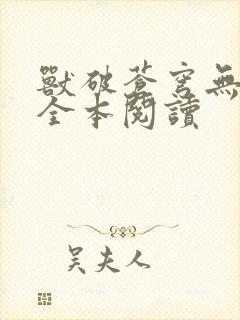 獸破蒼穹無
全本閱讀
吴夫人